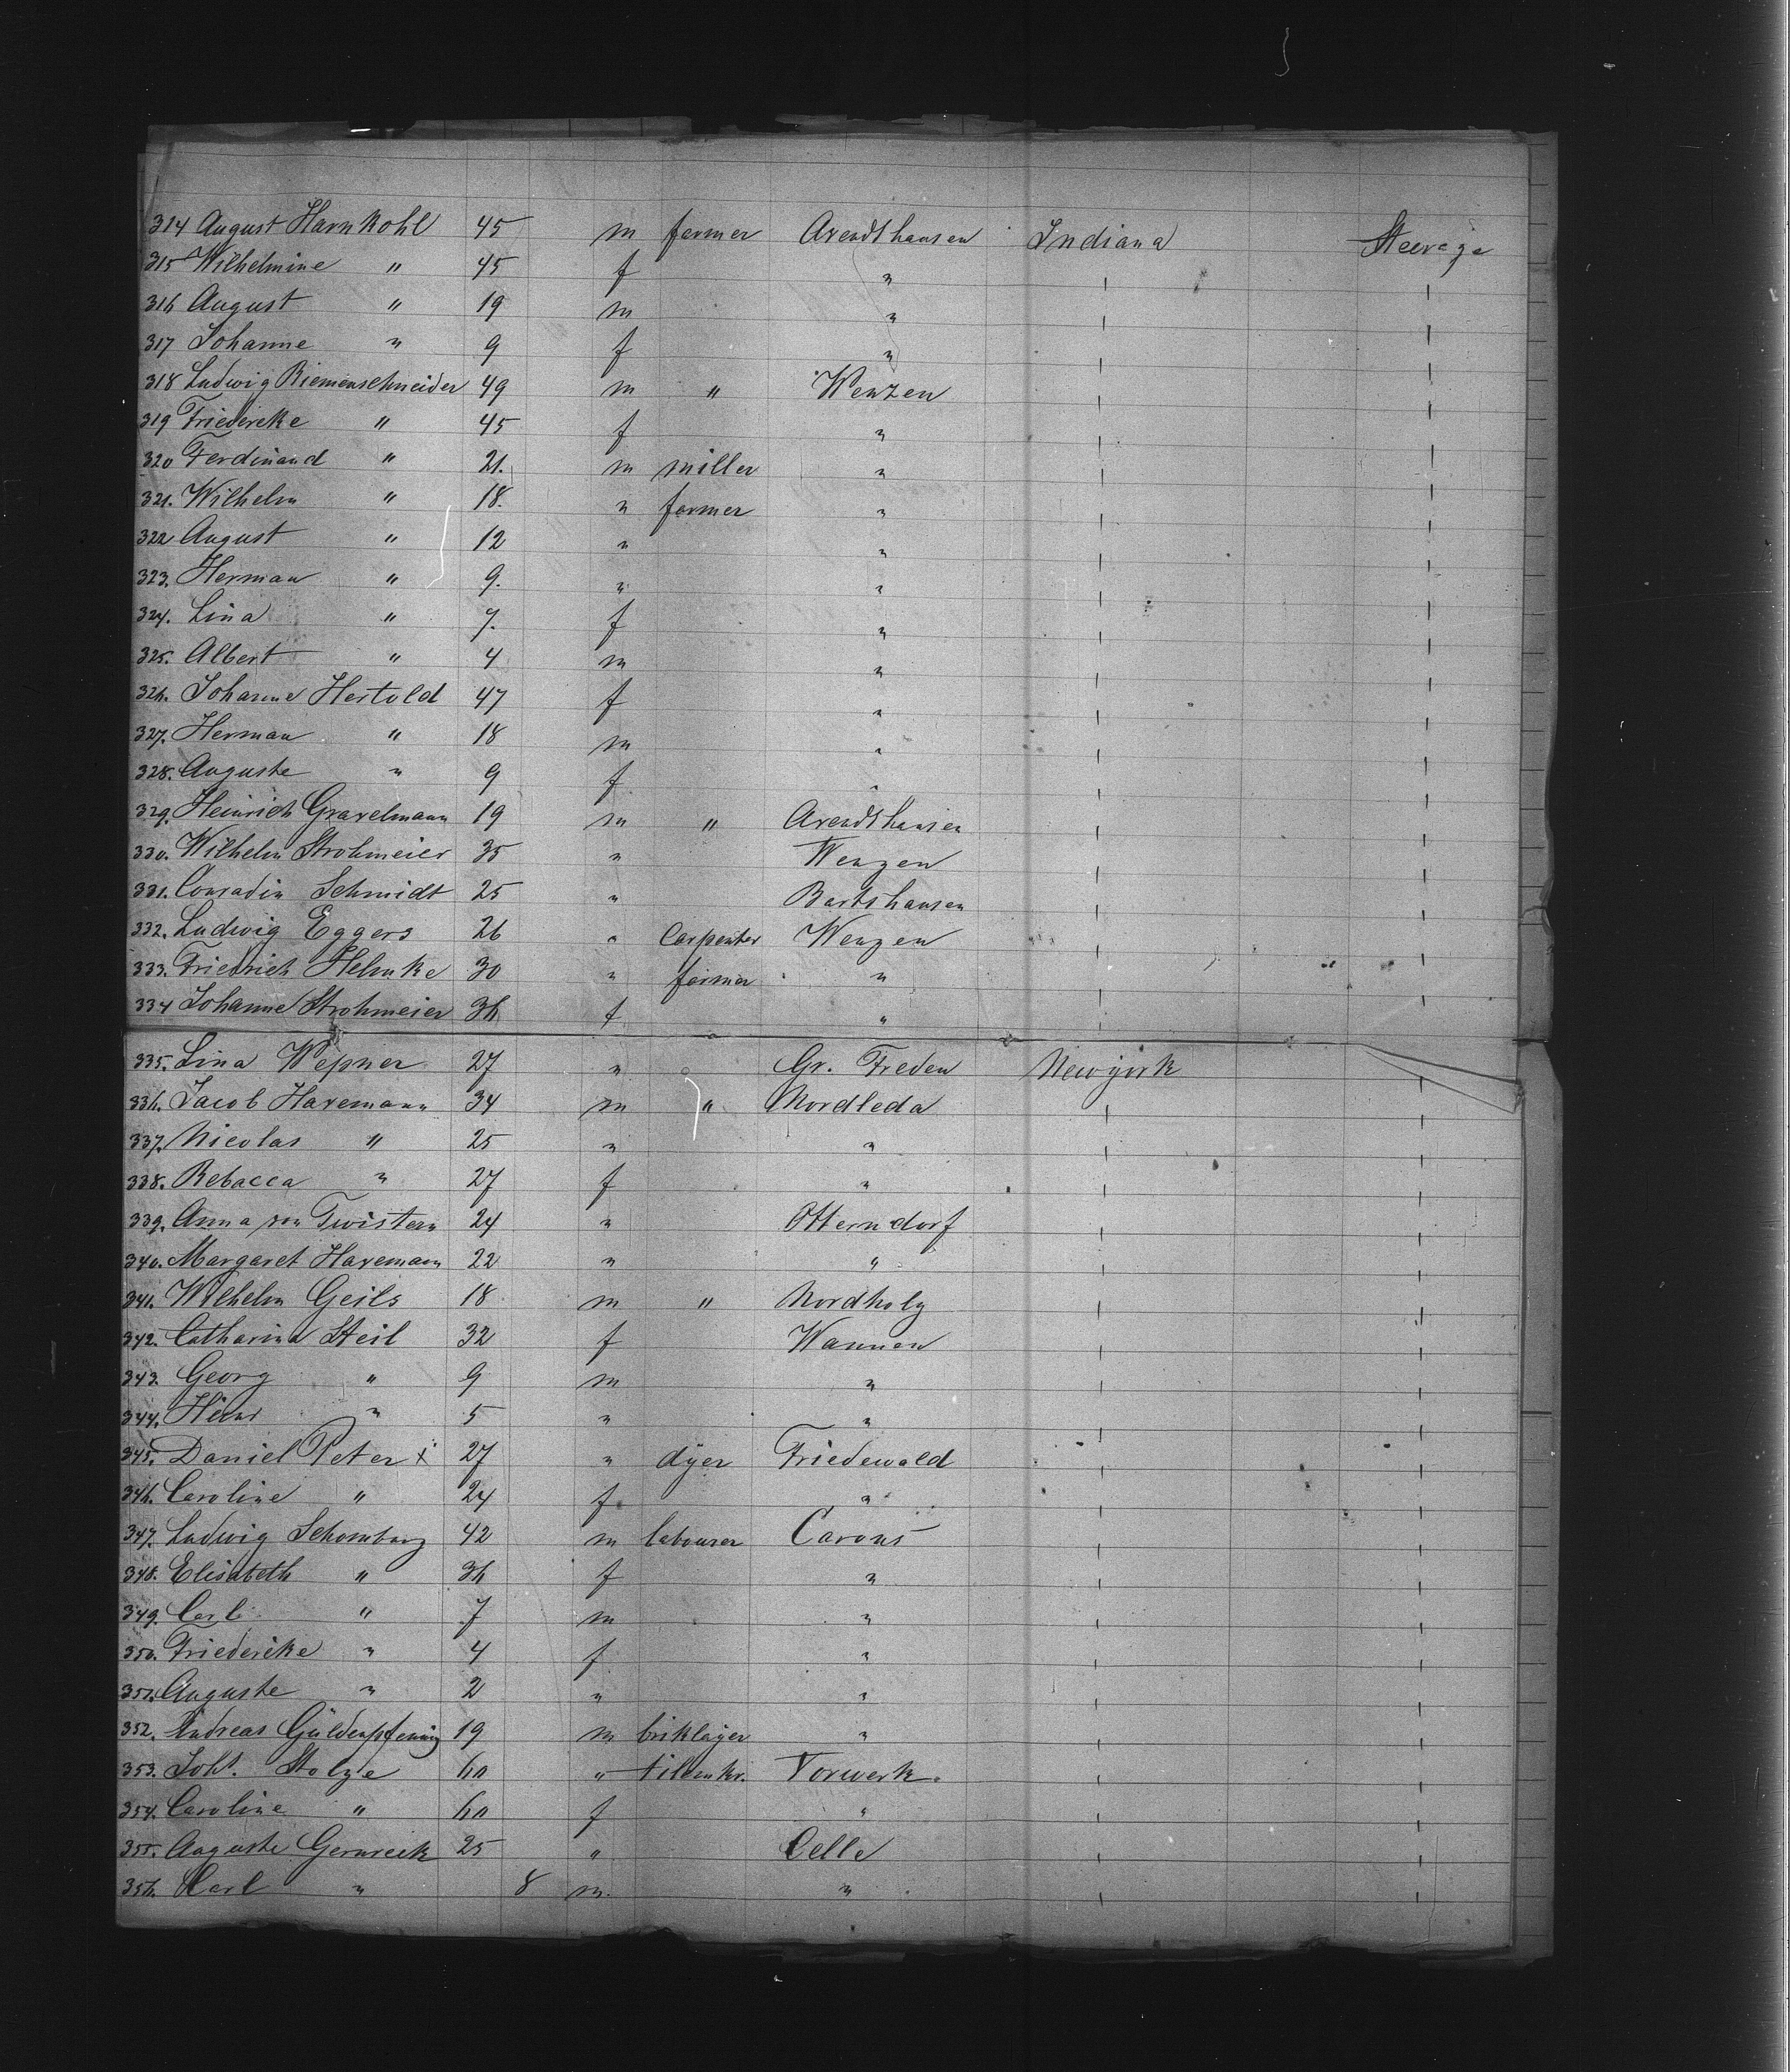 314 August Harnkohl 45 m farmer Arendshausen Indiana Steerage
315 Wilhelmine " 45 f "
316 August " 19 m "
317 Johanne " 9 f "
318 Ludwig Riemenschneider 49 m " Wenzen
319 Friedereke " 45 f "
320 Ferdinand " 21. m miller "
321. Wilhelm " 18. " farmer "
322 August " 12 " "
323. Herman " 9. " "
324. Lina " 7. f "
325. Albert " 4 m "
326. Johanne Hertold 47 f "
327. Herman " 18 m "
328. Auguste " 9 f "
329. Heinrich Gravelmann 19 m " Arendshausen
330. Wilhelm Strohmeier 35 " Wenzen
331. Conradin Schmidt 25 " Bartshausen
332. Ludwig Eggers 26 " Carpenter Wenzen
333. Friedrich Helmke 30 " farmer "
334 Johanne Strohmeier 36 f "
335. Lina Wepner 27 " Gr. Freden Newyork
336. Jacob Havemann 34 m " Nordleda
337. Nicolas " 25 " "
338. Rebacca " 27 f "
339. Anna von Twistern 24 " Otterndorf
340. Margaret Havemann 22 " "
341. Wilhelm Geils 18 m " Nordholz
342. Catharina Steil 32 f Wannen
343. Georg " 9 m "
344. " 5 " "
345. Daniel Peter x 27 " dyer Friedewald
346. Caroline " 24 f "
347. Ludwig Schomburg 42 m labourer
348. Elisabeth " 36 f "
349. Carl " 7 m "
350. Friedericke " 4 f "
351. Auguste " 2 " "
352. Andreas Güldenpfennig 19 m briklayer "
353. Joht. Stolze 60 " Vorwerk.
354. Caroline " 60 f "
355. Auguste 25 " Celle
356. Karl " 8 m. "